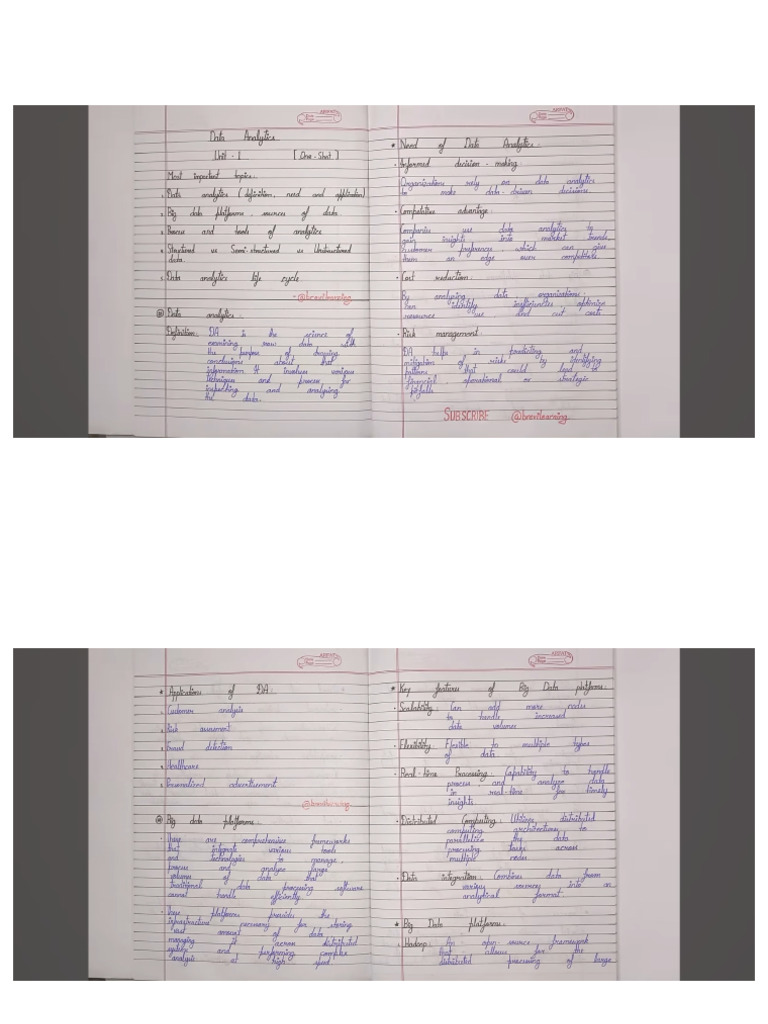 Data Analytics
Unit - 1 [One-Shot]
Most important topics.
1. Data analytics (definition, need and application)
2. Big data platforms, sources of data.
3. Process and tools of analytics
4. Structured vs Semi-structured vs Unstructured
data.
5. Data analytics life cycle
@brevilearning
Data analytics :
Definition: DA is the science of
examining raw data with
the purpose of drawing
conclusions about that
information. It involves various
techniques and process for
inspecting and analysing
the data.
* Need of Data Analytics.
• Informed decision-making:
Organizations rely on data analytics
to make data-driven decisions
• Competitive advantage:
Companies use data analytics to
gain insights into market trends,
customer preferences, which can give
them an edge over competitors.
• Cost reduction:
By analysing data, organizations
can identify inefficiencies, optimize
resource use and cut costs
• Risk management:
DA helps in predicting and
mitigation of risks by identifying
patterns that could lead to
financial, operational or strategic
pitfalls
SUBSCRIBE @brevilearning
* Applications of DA:
1. Customer analysis
2. Risk assessment
3. Fraud detection
4. Healthcare
5. Personalized advertisement
@brevilearning
Big data platforms:
• These are comprehensive frameworks
that integrate various tools
and technologies to manage,
process and analyse large
volumes of data that
traditional data processing software
cannot handle efficiently.
• These platforms provide the
infrastructure necessary for storing
vast amount of data
managing it across distributed
systems and performing complex
analysis at high speed
* Key features of Big Data platforms:
• Scalability: Can add more nodes
to handle increased
data volumes
• Flexibility: Flexible to multiple types
of data.
• Real-time Processing: Capability to handle
process, and analyze data
in real-time for timely
insights.
• Distributed Computing: Utilizes distributed
computing architectures to
parallelize the data
processing tasks across
multiple nodes
• Data integration: Combines data from
various sources into an
analytical format
* Big Data platforms:
1. Hadoop: An open-source framework
that allows for the
distributed processing of large